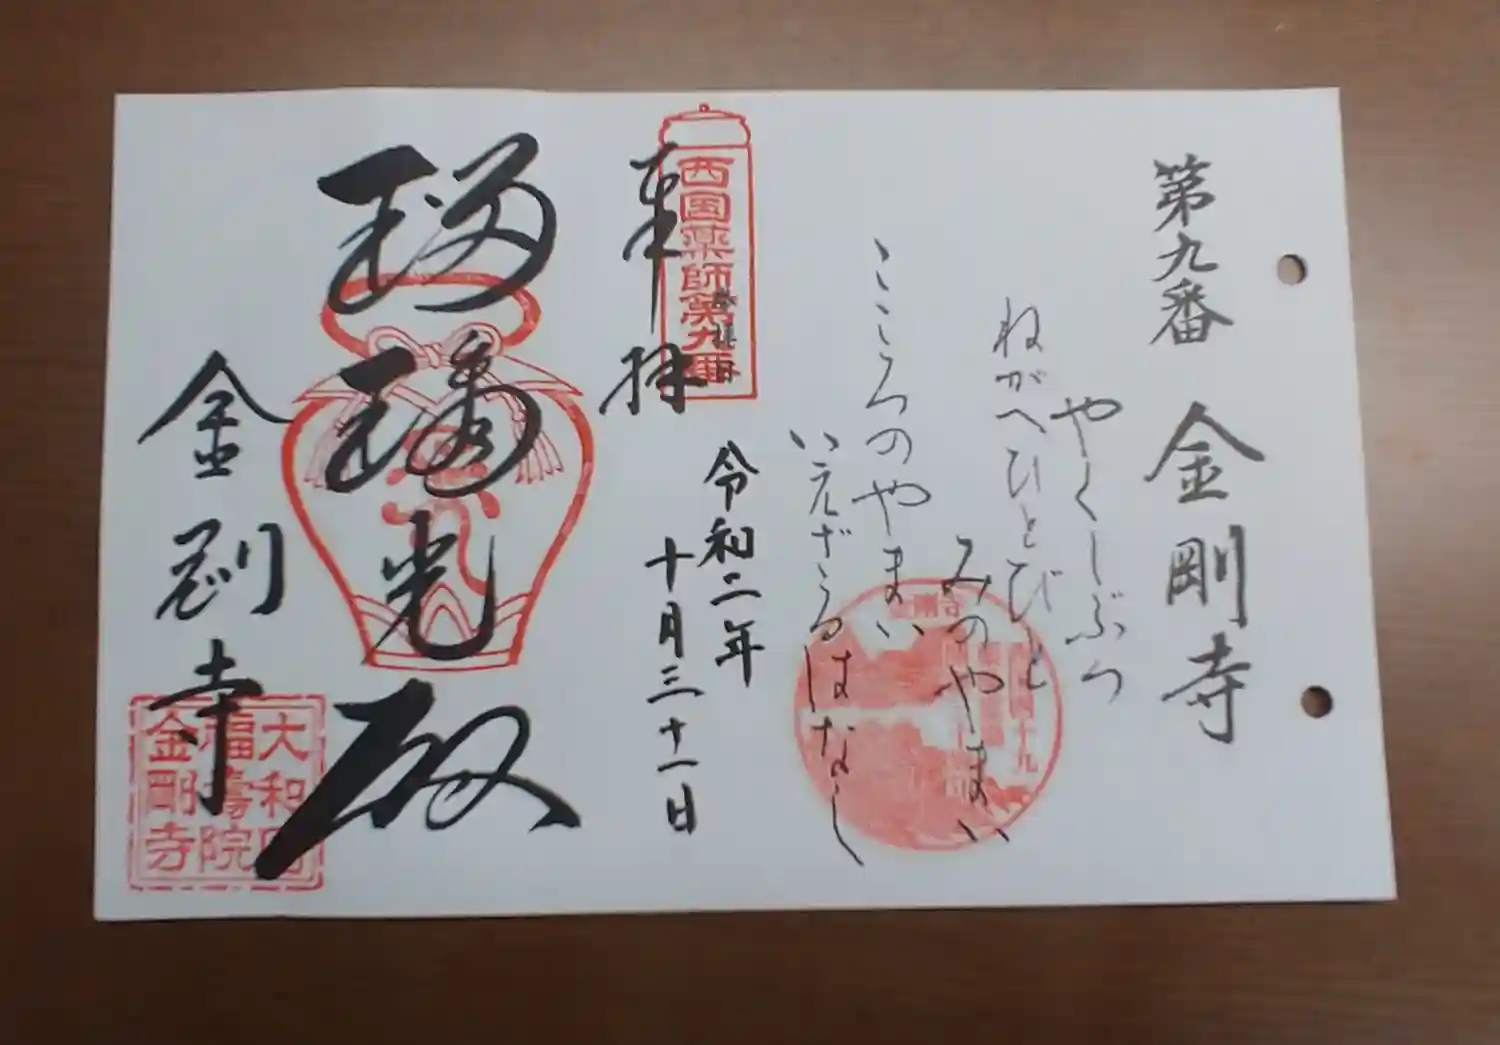 第九番 金剛寺
やくしぶつ
ねがへひとびと
みのやまい
こころのやまい
いえざるはなし
奉拝
西国薬師第九番
令和二年
十月三十一日
瑠璃光殿
金剛寺
大和国
福壽院
金剛寺